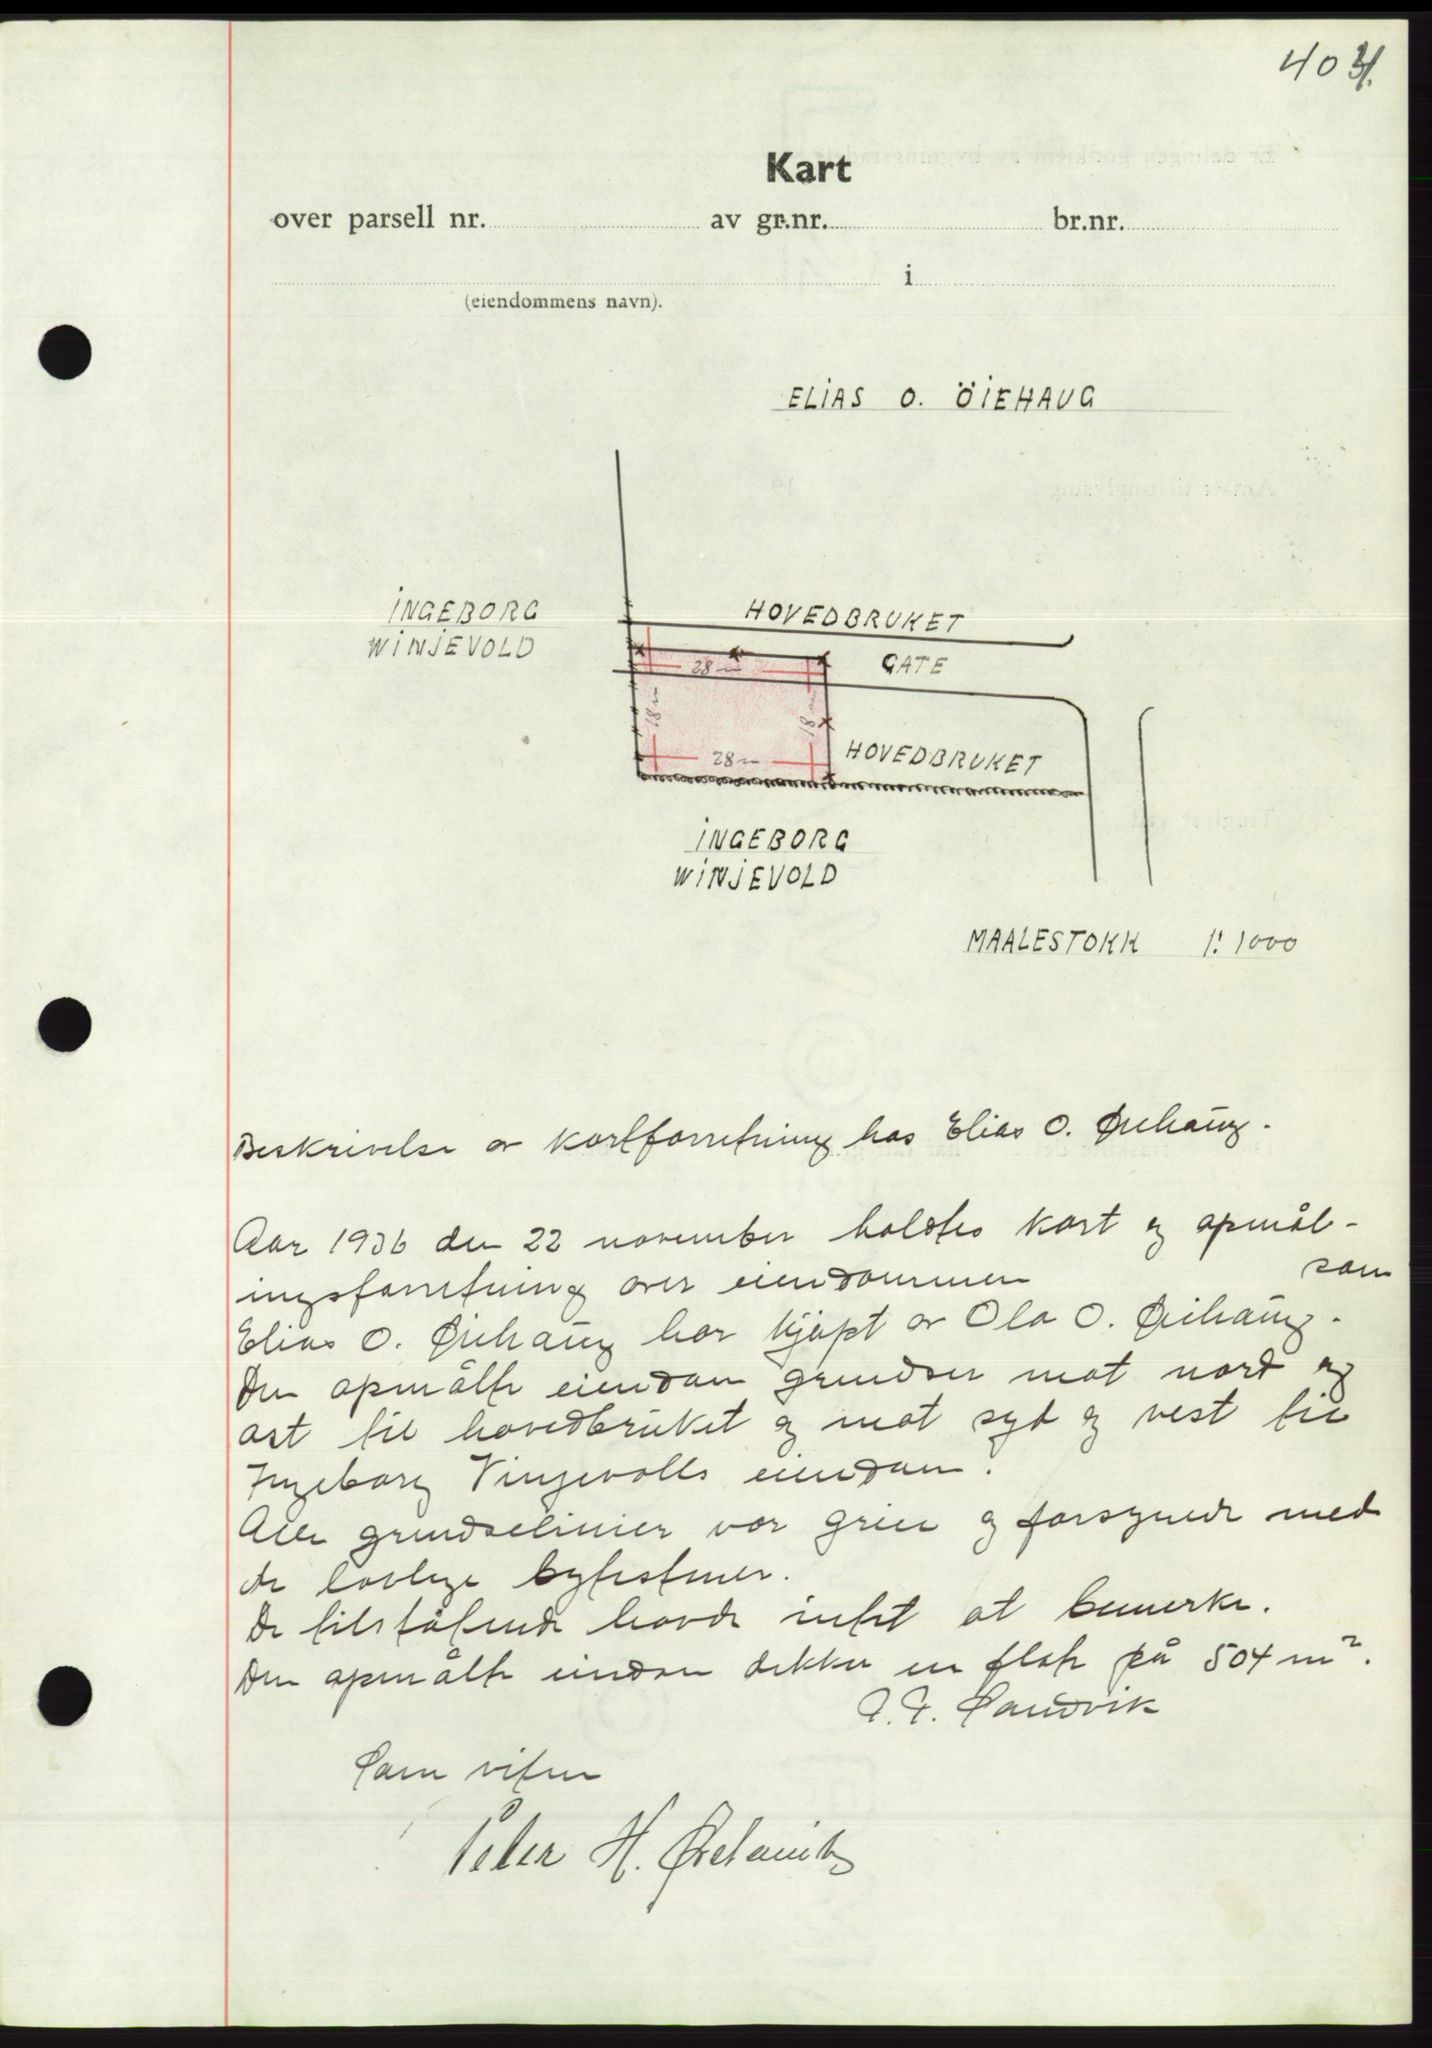 404.
Kart
over parsell nr. av gr.nr. br.nr.
i
(eiendommens navn).
ELIAS O. ÖIEHAUG
INGEBORG
WINJEVOLD
HOVEDBRUKET
GATE
28 m
18 m
18 m
28 m
HOVEDBRUKET
INGEBORG
WINJEVOLD
MAALESTOKK 1:1000
Beskrivelse av kartforretning hos Elias O. Øiehaug.
Aar 1936 den 22 november holdtes kart og opmål-
ingsforretning over eiendommen som
Elias O. Øiehaug har kjøpt av Ola O. Øiehaug.
Den opmålte eiendom grendser mot nord og
øst til hovedbruket og mot syd og vest til
Ingeborg Vinjevolls eiendom.
Alle grendselinier var greie og forsynede med
de lovlige bytestener.
De tilstøtende havde intet at bemerke.
Den opmålte eiendom dekker en flate på 504 m².
Sandvik
Som vitne
Peter H.